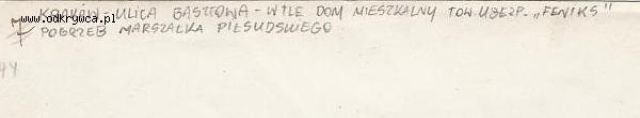 KRAKÓW - ULICA BASZTOWA - W TLE DOM MIESZKALNY TOW. UBEZP. - „FENIKS"
www.odkrywca.pl
7 POGRZEB MARSZAŁKA PIŁSUDSKIEGO
44